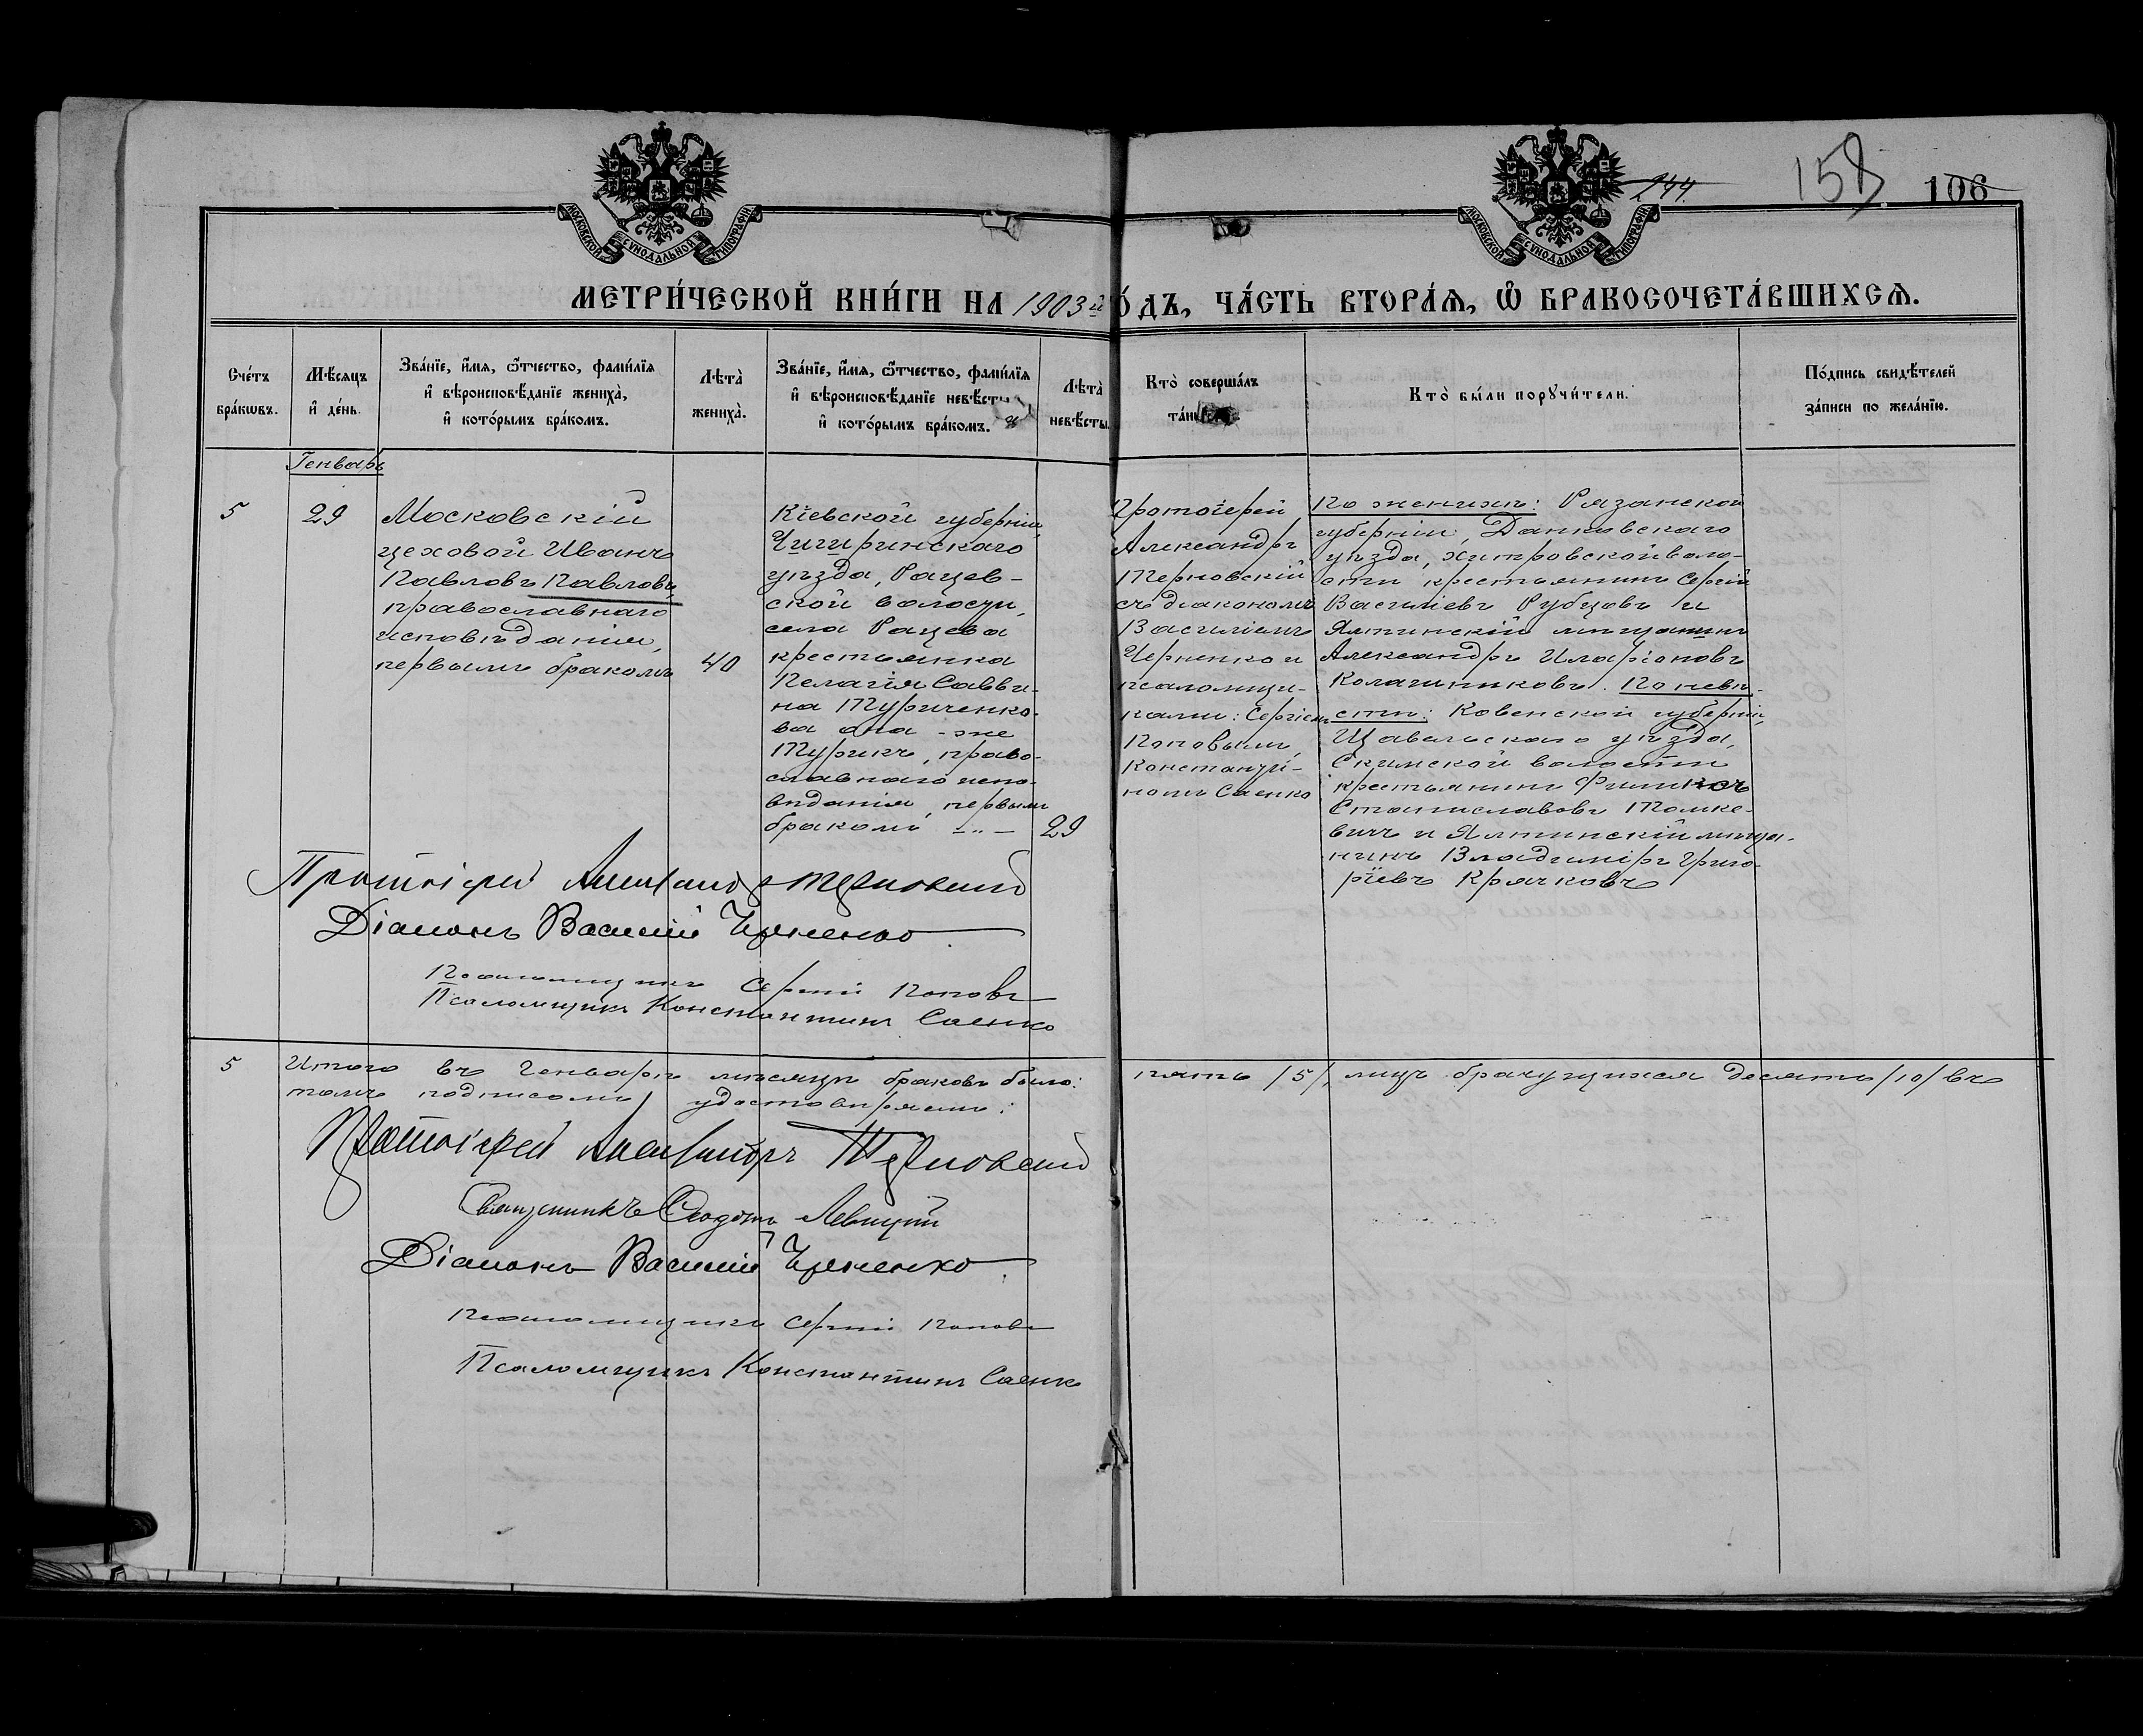 МОСКОВСКОЙ СѴНОДАЛЬНОЙ ТИПОГРАФІИ
МОСКОВСКОЙ СѴНОДАЛЬНОЙ ТИПОГРАФІИ
244
158
106
МЕТРИ́ЧЕСКОЙ КНИ́ГИ НА 1903 й
О́ДЪ, ЧА́СТЬ ВТОРА́Я, Ѽ БРАКОСОЧЕТА́ВШИХСЯ.
Сче́тъ
бра́кѡвъ.
Мѣ́сяцъ
и҆ де́нь.
Зва́нїе, и҆́мя, ѻ҆́тчество, фами́лїя
и҆ вѣроисповѣ́данїе жениха̀,
и҆ кото́рымъ бра́комъ.
Лѣта̀
жениха̀.
Зва́нїе, и҆́мя, ѻ҆́тчество, фами́лїя
и҆ вѣроисповѣ́данїе невѣ́сты
и҆ кото́рымъ бра́комъ.
Лѣта̀
невѣ́сты.
Кто̀ соверша́лъ
та́ин
Кто̀ бы́ли порꙋчи́тели.
По́дпись свидѣ́телей
за́писи по жела́нїю.
Генварь
5
29
Московскій
цеховой Иванъ
Павловъ Павловъ,
православнаго
исповѣданія,
первымъ бракомъ
40
Кіевской губерніи,
Чигиринскаго
уѣзда, Рацев-
ской волости,
села Рацева
крестьянка
Пелагія Савви-
на Туриченко-
ва она-же
Турикъ, право-
славнаго испо-
вѣданія, первымъ
бракомъ
29
Протоіерей
Александръ
Терновскій
съ діакономъ
Василіемъ
Черненко и
псаломщи-
ками: Сергіемъ
Поповымъ,
Константи-
номъ Саенко
По женихѣ: Рязанской
губерніи, Данковскаго
уѣзда, Хитровской воло-
сти крестьянинъ Сергій
Василіевъ Рубцовъ и
Ялтинскій мѣщанинъ
Александръ Иларіоновъ
Колашниковъ. По невѣ-
стѣ: Ковенской губерніи,
Шавельскаго уѣзда,
Скимской волости
крестьянинъ Филиксъ
Станиславовъ Томке-
вичъ и Ялтинскій мѣща-
нинъ Владиміръ Григо-
ріевъ Крячковъ
Протоіерей Александръ Терновскій
Діаконъ Василій Черненко
Псаломщикъ Сергій Поповъ
Псаломщикъ Константинъ Саенко
5
Итого въ Генварѣ мѣсяцѣ браковъ было: пять /5/, лицъ брачущихся десять /10/ въ
томъ подписомъ удостовѣряемъ:
Протоіерей Александръ Терновскій
Священникъ Ѳеодотъ Левицкій
Діаконъ Василій Черненко
Псаломщикъ Сергій Поповъ
Псаломщикъ Константинъ Саенко